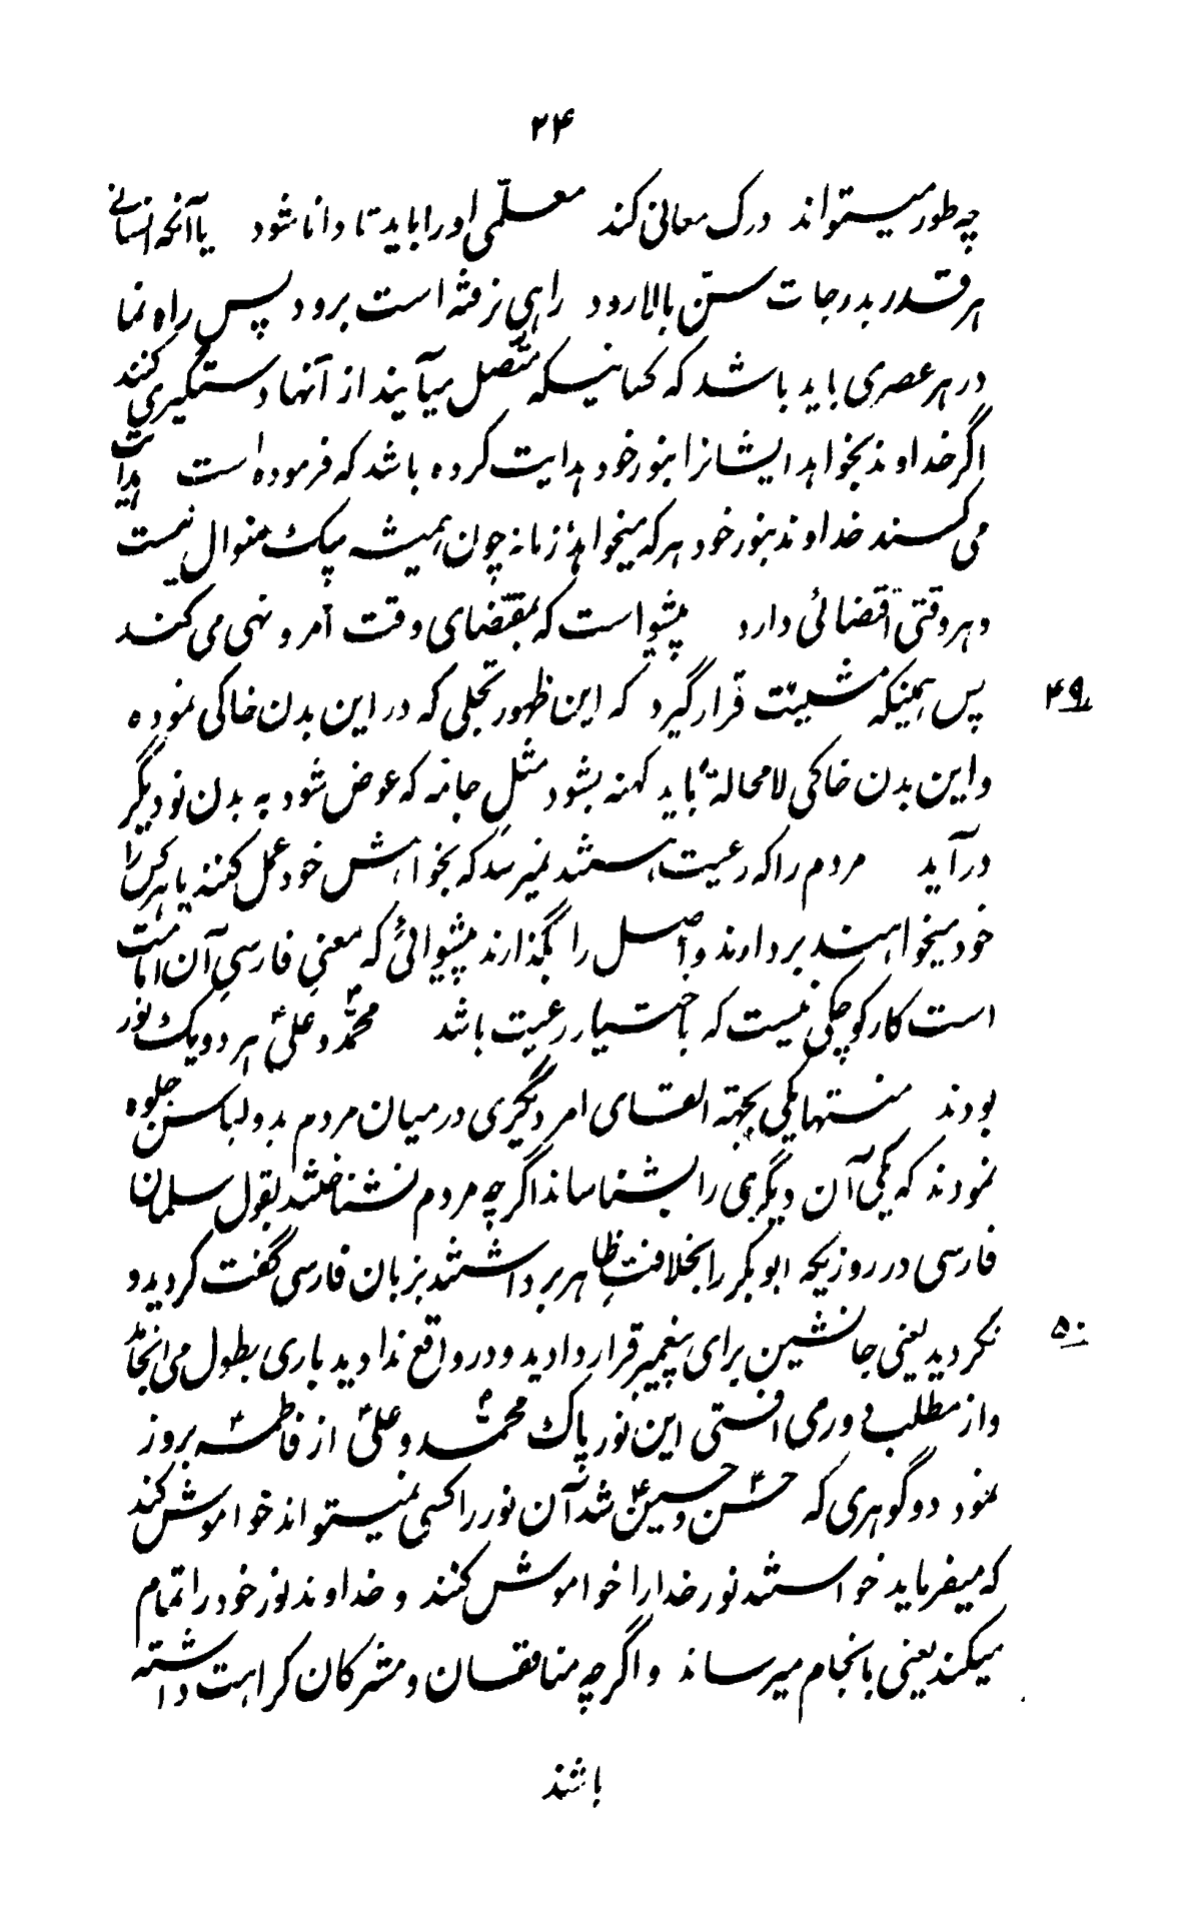 ۲۴
چه طور میتواند درک معانی کند معلّمی او را باید تا دانا شود یا آنکه انسانی
هر قدر بدرجات سنّ بالا رود راهی نرفته است برود پس راه نما
در هر عصری باید باشد که کسانیکه متّصل میآیند از آنها دستگیری کنند
اگر خداوند بخواهد ایشانرا بنور خود هدایت کرده باشد که فرموده است هدایت
می کند خداوند بنور خود هر که میخواهد زمانه چون همیشه بیک منوال نیست
و هر وقتی اقتضائی دارد پیشوا است که بمقتضای وقت امر و نهی می کند
۴۹
پس همینکه مشیّت قرار گیرد که این ظهور تجلی که در این بدن خاکی نموده
و این بدن خاکی لامحالة باید کهنه بشود مثل جامه که عوض شود به بدن نو دیگر
درآید مردم را که رعیت هستند نمیرسد که بخواهش خود عمل کنند یا هر کس را
خود میخواهند بردارند و اصل را بگذارند پیشوائی که معنی فارسی آن امامت
است کار کوچکی نیست که باختیار رعیت باشد محمّد و علی هر دو یک نور
بودند منتها یکی بجهة القای امر دیگری در میان مردم بدو لباس جلوه
نمودند که یکی آن دیگری را بشناساند اگر چه مردم نشناختند بقول سلمان
فارسی در روزیکه ابوبکر را بخلافت ظاهر برداشتند بزبان فارسی گفت کردید و
۵۰
نکردید یعنی جانشین برای پیغمبر قرار دادید و در واقع ندادید باری بطول می انجامد
و از مطلب دور می افتی این نور پاک محمّد و علی از فاطمه بروز
نمود دو گوهری که حسن و حسین شد آن نور را کسی نمیتواند خواموش کند
که میفرماید خواستند نور خدا را خواموش کنند و خداوند نور خود را تمام
میکند یعنی بانجام میرساند و اگر چه منافقان و مشرکان کراهت داشته
باشند